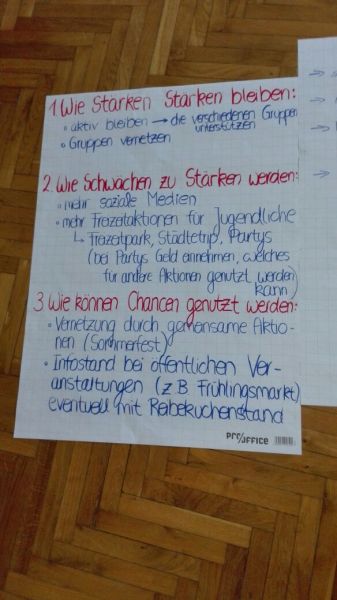 1. Wie Stärken Stärken bleiben:
• aktiv bleiben → die verschiedenen Gruppen
unterstützen
• Gruppen vernetzen
2. Wie Schwächen zu Stärken werden:
• mehr soziale Medien
• mehr Freizeitaktionen für Jugendliche
↳ Freizeitpark, Städtetrip, Partys
(bei Partys Geld einnehmen, welches
für andere Aktionen genutzt werden
kann)
3 Wie können Chancen genutzt werden:
• Vernetzung durch gemeinsame Aktio-
nen (Sommerfest)
• Infostand bei öffentlichen Ver-
anstaltungen (z.B Frühlingsmarkt)
eventuell mit Reibekuchenstand
PRO/OFFICE